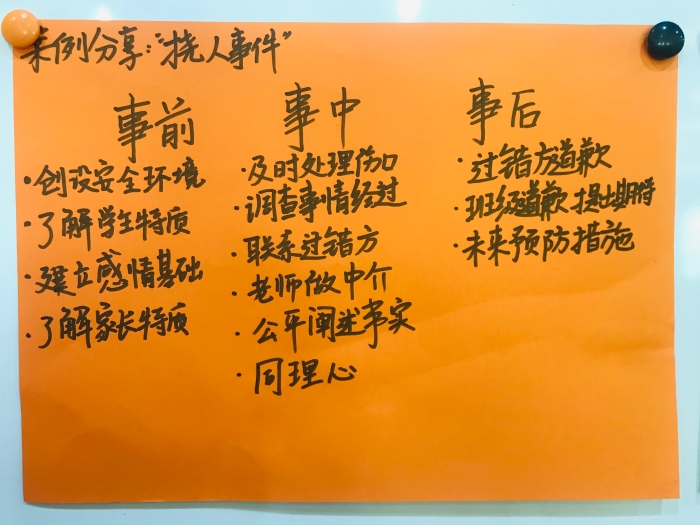 案例分享："挠人事件"
事前
·创设安全环境
·了解学生特质
·建立感情基础
·了解家长特质
事中
·及时处理伤口
·调查事情经过
·联系过错方
·老师做中介
·公平阐述事实
·同理心
事后
·过错方道歉
·班级道歉 提出期待
·未来预防措施